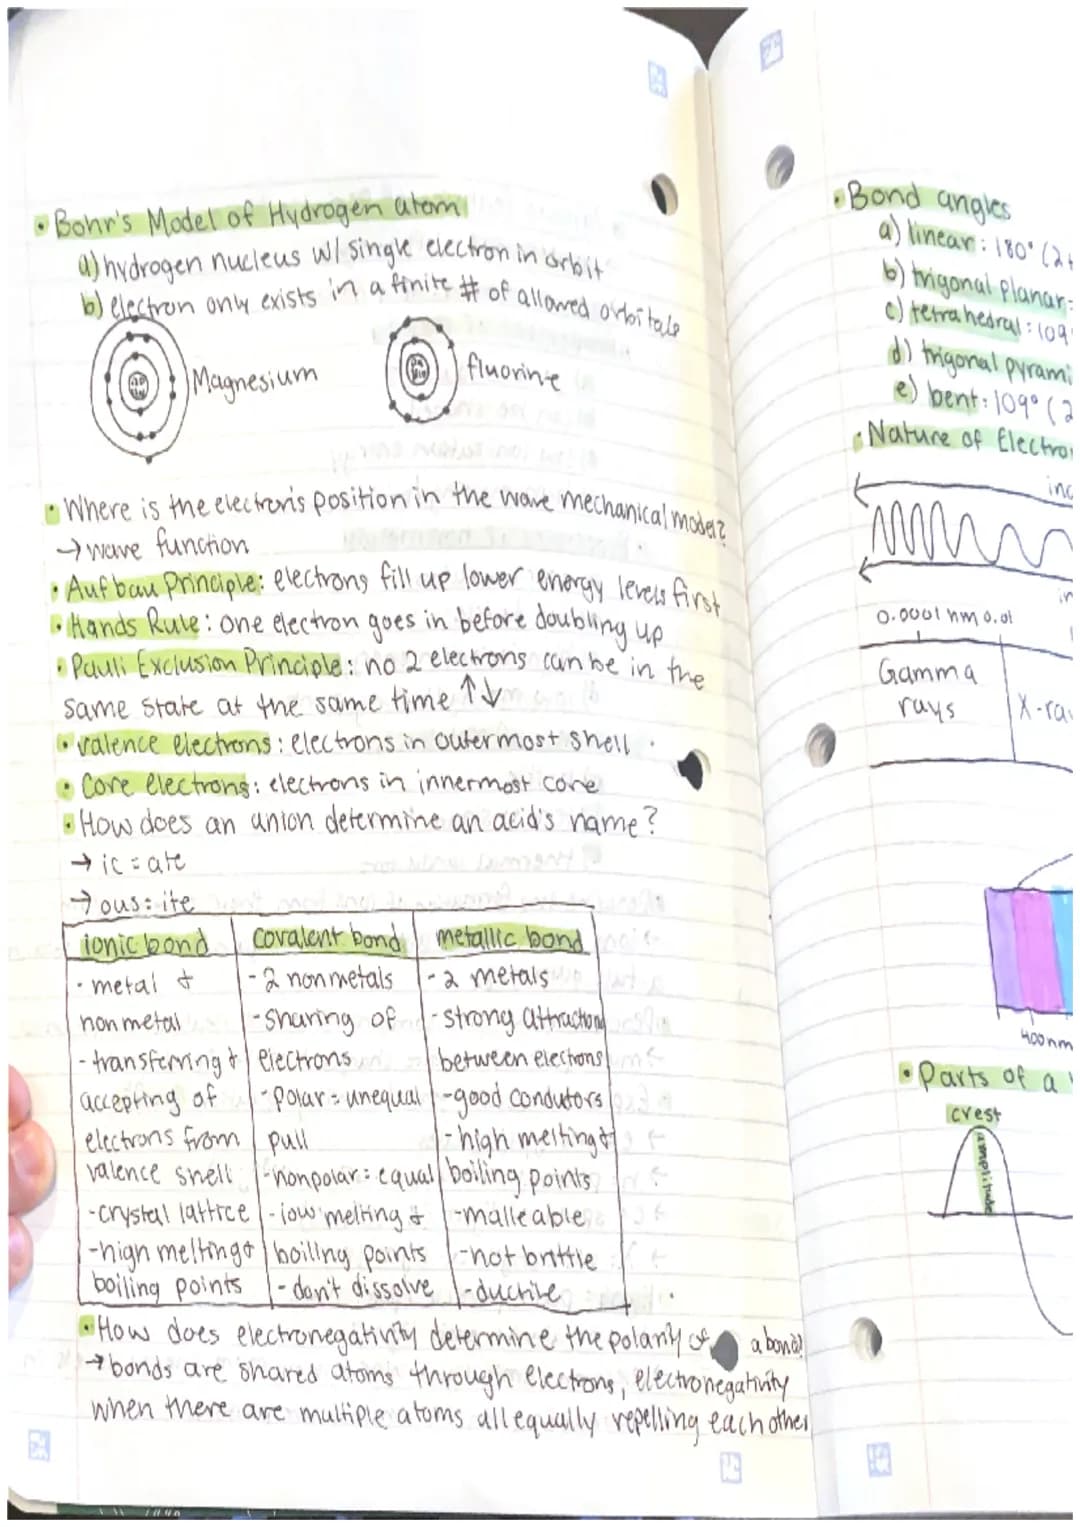 • Bohr's Model of Hydrogen atom
a) hydrogen nucleus w/ single electron in orbit
b) electron only exists in a finite # of allowed orbitals
Magnesium
fluorine
• Where is the electron's position in the wave mechanical model?
→ wave function
• Aufbau Principle: electrons fill up lower energy levels first
• Hands Rule: one electron goes in before doubling up
• Pauli Exclusion Principle: no 2 electrons can be in the
same state at the same time ↑↓
• valence electrons: electrons in outermost shell
• Core electrons: electrons in innermost core
• How does an anion determine an acid's name?
→ ic = ate
→ ous = ite
ionic bond
- metal +
nonmetal
- transferring +
accepting of
electrons from
valence shell
- crystal lattice
- high melting +
boiling points
covalent bond
- 2 nonmetals
- sharing of
electrons
- polar = unequal
pull
- nonpolar = equal
- low melting +
boiling points
- don't dissolve
metallic bond
- 2 metals
- strong attraction
between electrons
- good condutors
- high melting +
boiling points
- malleable
- not brittle
- ductile
• How does electronegativity determine the polarity of a bond?
→ bonds are shared atoms through electrons, electronegativity
when there are multiple atoms all equally repelling each other
• Bond angles
a) linear: 180° (2
b) trigonal planar=
c) tetrahedral: 109
d) trigonal pyrami
e) bent: 109° (2
• Nature of Electro
inc
in
0.0001 nm 0.01
Gamma
rays
X-ra
400nm
• Parts of a
crest
amplitude